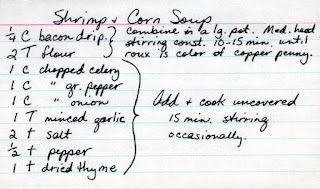 Shrimp & Corn Soup
1/4 C bacon drip. } Combine in a lg. pot. Med. heat
2 T flour } stirring const. 10-15 min. until
roux is color of copper penny.
1 C chopped celery
1 C " gr. pepper
1 C " onion
1 T minced garlic
2 t salt
1/2 t pepper
1 t dried thyme
Add & cook uncovered
15 min. stirring
occasionally.